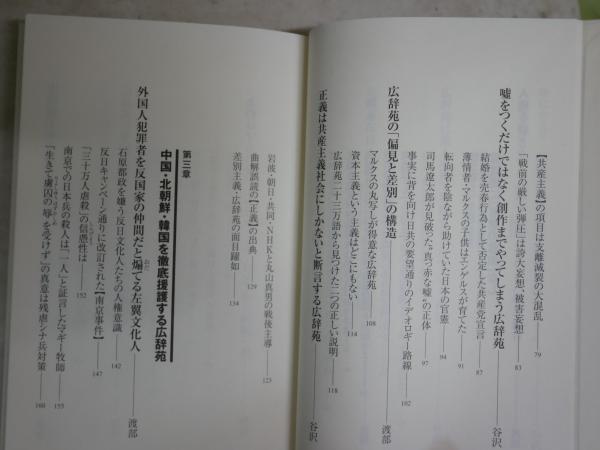 【共産主義】の項目は支離滅裂の大混乱 79
「戦前の厳しい弾圧」は誇大妄想、被害妄想 83
嘘をつくだけではなく創作までやってしまう広辞苑 谷沢
結婚を売春行為として否定した共産党宣言 87
薄情者・マルクスの子供はエンゲルスが育てた 91
転向者を陰ながら助けていた日本の官憲 94
司馬遼太郎が見破った“真っ赤な嘘”の正体 97
事実に背を向け日共の要望通りのイデオロギー路線 102
広辞苑の「偏見と差別」の構造 渡部
マルクスの丸写しが得意な広辞苑 108
資本主義という主義はどこにもない 114
広辞苑二十三万語から見つけた二つの正しい説明 118
正義は共産主義社会にしかないと断言する広辞苑 谷沢
岩波・朝日・共同・NHKと丸山真男の戦後主導 123
曲解誤読の【正義】の出典 129
差別主義・広辞苑の面目躍如 134
第三章
中国・北朝鮮・韓国を徹底援護する広辞苑
外国人犯罪者を反国家の仲間だと煽てる左翼文化人 渡部
おだ
石原都政を嫌う反日文化人たちの人権意識 142
反日キャンペーン通りに改訂された【南京事件】 147
「三十万人虐殺」の信憑性は 152
南京での日本兵の殺人は「一人」と証言したマギー牧師 155
「生きて虜囚の辱を受けず」の真意は残虐シナ兵対策 160